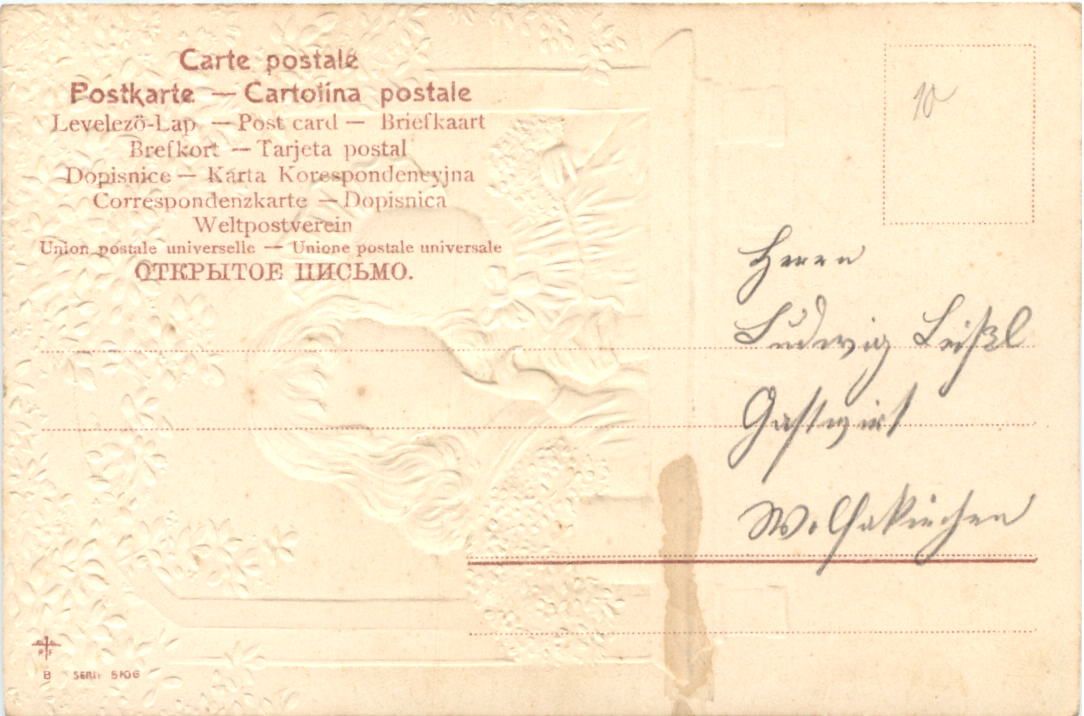 Carte postale
Postkarte — Cartolina postale
Levelező-Lap — Post card — Briefkaart
Brefkort — Tarjeta postal
Dopisnice — Karta Korespondencyjna
Correspondenzkarte — Dopisnica
Weltpostverein
Union postale universelle — Unione postale universale
ОТКРЫТОЕ ПИСЬМО.
10
Herrn
Ludwig
Gastwirt
B SERIE 5106